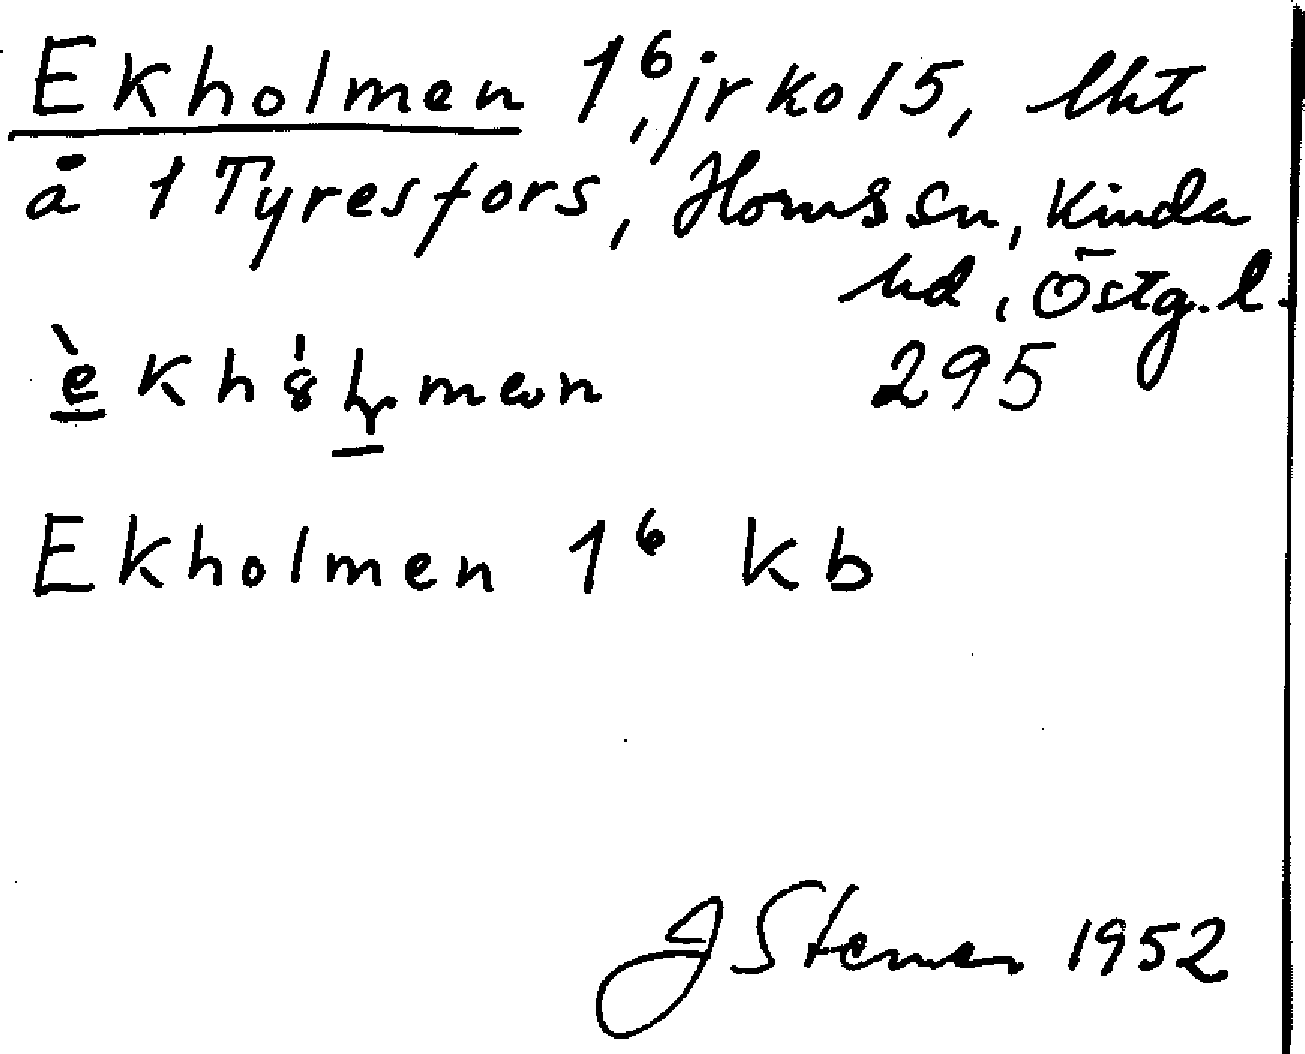 Ekholmen 1⁶, jr ko 15, lht
å 1 Tyresfors, Horns sn, Kinda
hd, Östg. l.
295
Ekholmen 1⁶ kb
J Stenen 1952